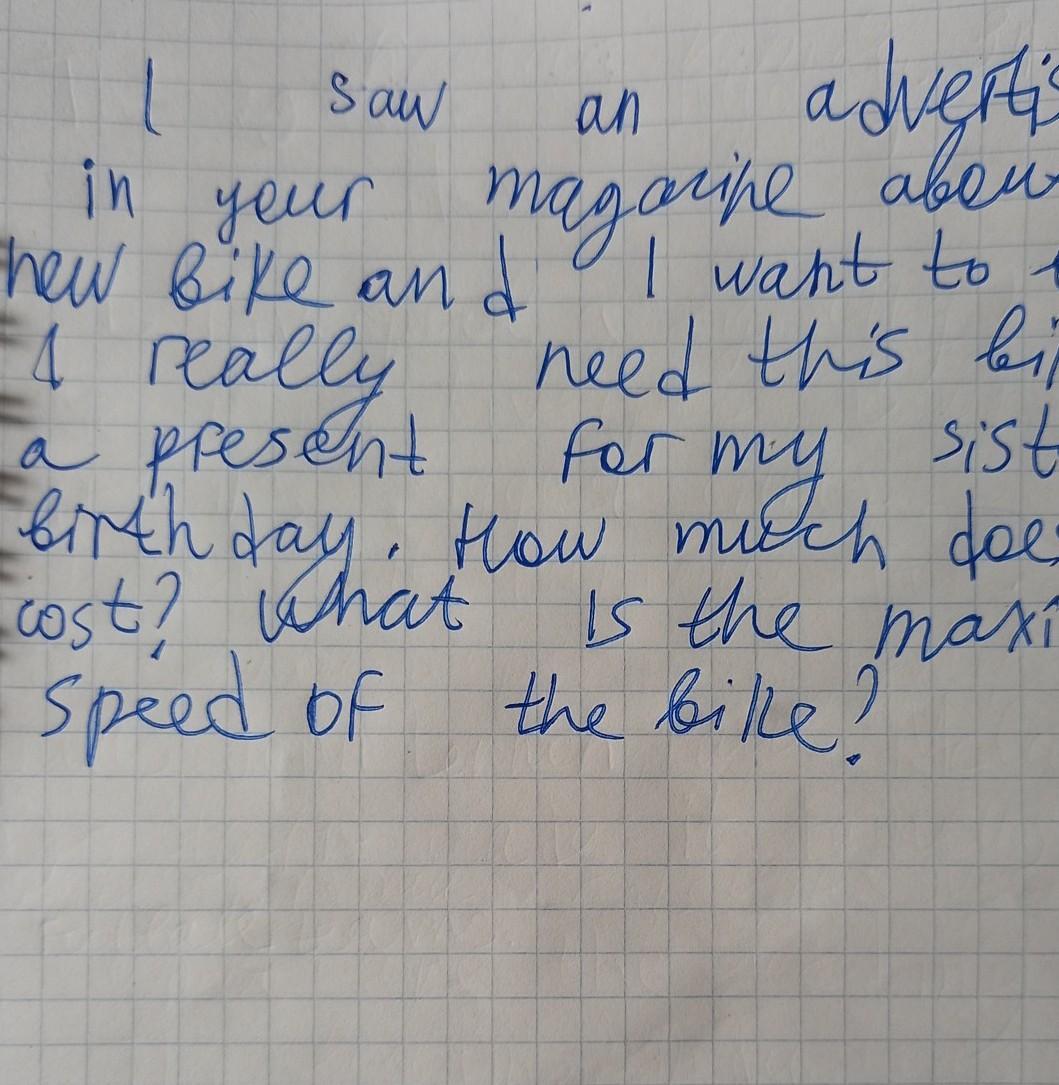 I saw an advertis
in your magazine about
new bike and I want to
I really need this bi
a present for my sist
birthday. How much does
cost? What is the maxi
speed of the bike?